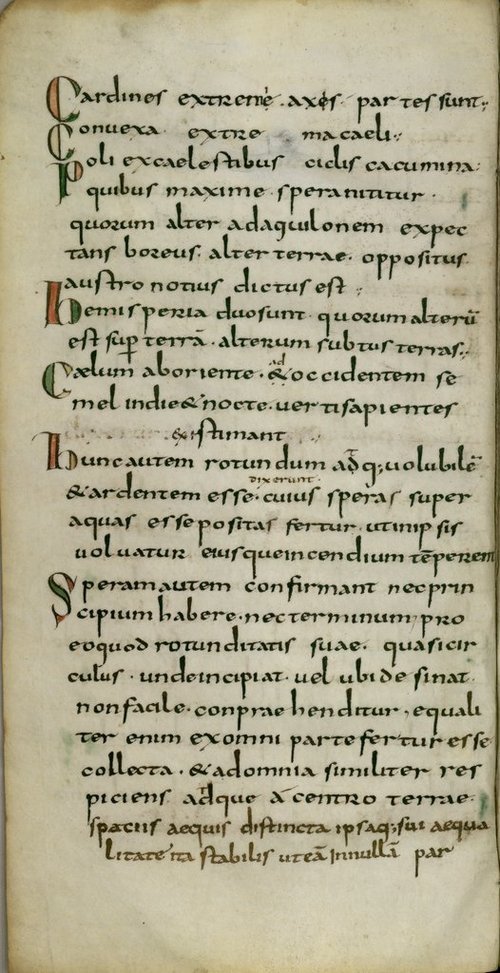 Cardines extreme. axes. partes sunt.,
Convexa extre ma caeli.,
Poli ex caelestibus ciclis cacumina.
quibus maxime spera nititur.
quorum alter ad aquilonem expec
tans boreus. alter terrae oppositus
austro notius dictus est.,
Hemisperia duo sunt quorum alterū
est sup terrā. alterum subtus terras.,
Caelum ab oriente. & ad occidentem se
mel in die & nocte. verti sapientes
existimant
Hunc autem rotundum adq; volubilē
dixerunt
& ardentem esse. cuius speras super
aquas esse positas fertur. ut in ipsis
volvatur eiusque incendium tēperem
Speram autem confirmant nec prin
cipium habere. nec terminum, pro
eo quod rotunditatis suae. quasi cir
culus. unde incipiat. vel ubi desinat.
non facile. conprae henditur, equali
ter enim ex omni parte fertur esse
collecta. & ad omnia similiter res
piciens adque a centro terrae.
spaciis aequis distincta ipsaq; sui aequa
litate ita stabilis ut eā in nullā par